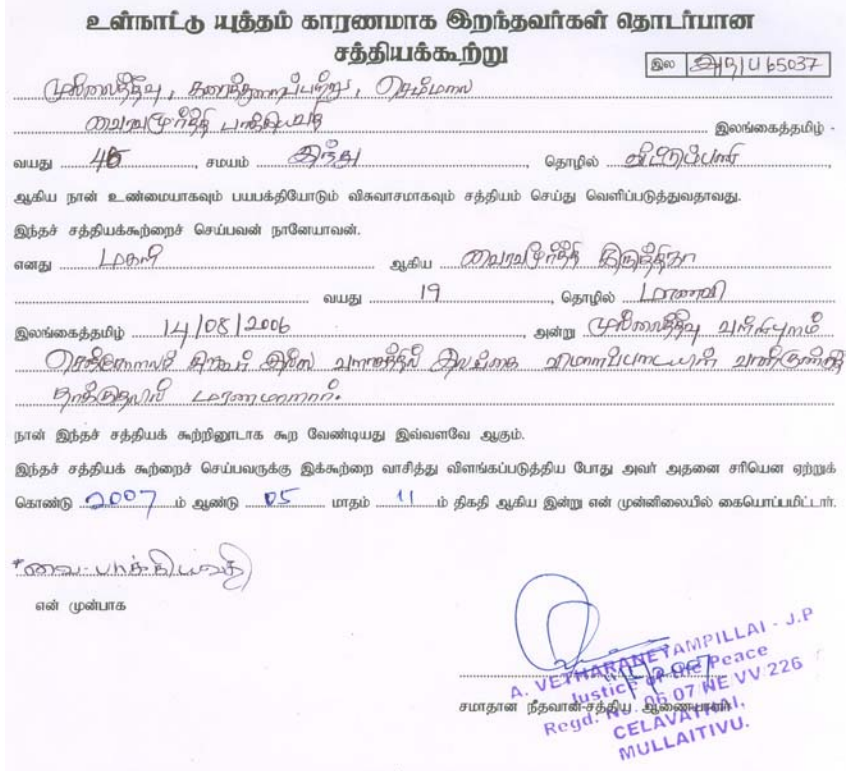 உள்நாட்டு யுத்தம் காரணமாக இறந்தவர்கள் தொடர்பான
சத்தியக்கூற்று
இல அநி/U 65037
முல்லைத்தீவு, கரைத்துறைப்பற்று, செம்மலை
வைரவமூர்த்தி பாக்கியவதி இலங்கைத்தமிழ் -
வயது 45, சமயம் இந்து, தொழில் வீட்டுப்பணி,
ஆகிய நான் உண்மையாகவும் பயபக்தியோடும் விசுவாசமாகவும் சத்தியம் செய்து வெளிப்படுத்துவதாவது.
இந்தச் சத்தியக்கூற்றைச் செய்பவன் நானேயாவன்.
எனது மகள் ஆகிய வைரவமூர்த்தி கிருத்திகா
வயது 19, தொழில் மாணவி
இலங்கைத்தமிழ் 14/08/2006, அன்று முல்லைத்தீவு வள்ளிபுனம்
செஞ்சோலைச் சிறுவர் இல்ல வளாகத்தில் இலங்கை விமானப்படையின் வான்குண்டு
தாக்குதலில் மரணமானார்.
நான் இந்தச் சத்தியக் கூற்றினூடாக கூற வேண்டியது இவ்வளவே ஆகும்.
இந்தச் சத்தியக் கூற்றைச் செய்பவருக்கு இக்கூற்றை வாசித்து விளங்கப்படுத்திய போது அவர் அதனை சரியென ஏற்றுக்
கொண்டு 2007 ம் ஆண்டு 05 மாதம் 11 ம் திகதி ஆகிய இன்று என் முன்னிலையில் கையொப்பமிட்டார்.
*வை. பாக்கியவதி
என் முன்பாக
சமாதான நீதவான்-சத்திய ஆணையாளர்
A. VETHARANEYAMPILLAI - J.P
Justice of the Peace
Regd. No. 06 07 NE VV 226
CELAVATHAI,
MULLAITIVU.